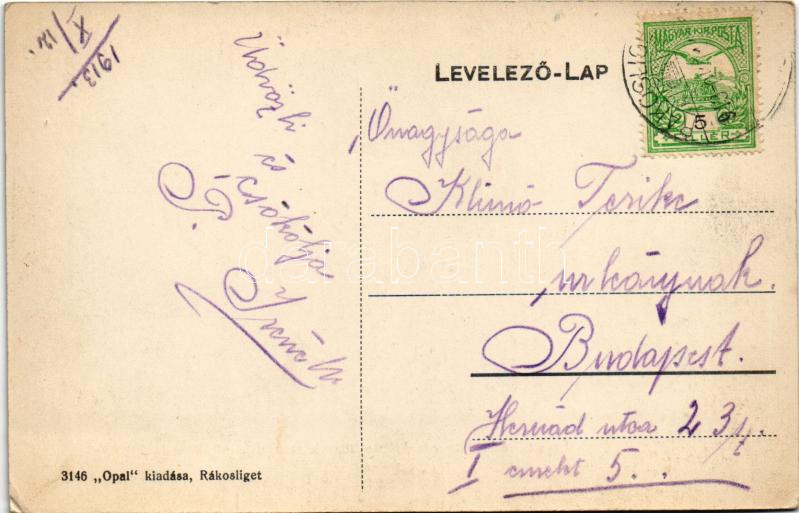 1913.
X/12.
Üdvözli
és
csókolja
T.
Irénke
LEVELEZŐ-LAP
MAGYAR KIR. POSTA
5
Önagysága
Klimó Terike
urleánynak.
Budapest.
Hernád utca 23/
I emelet 5.
3146 „Opal" kiadása, Rákosliget
darabanth